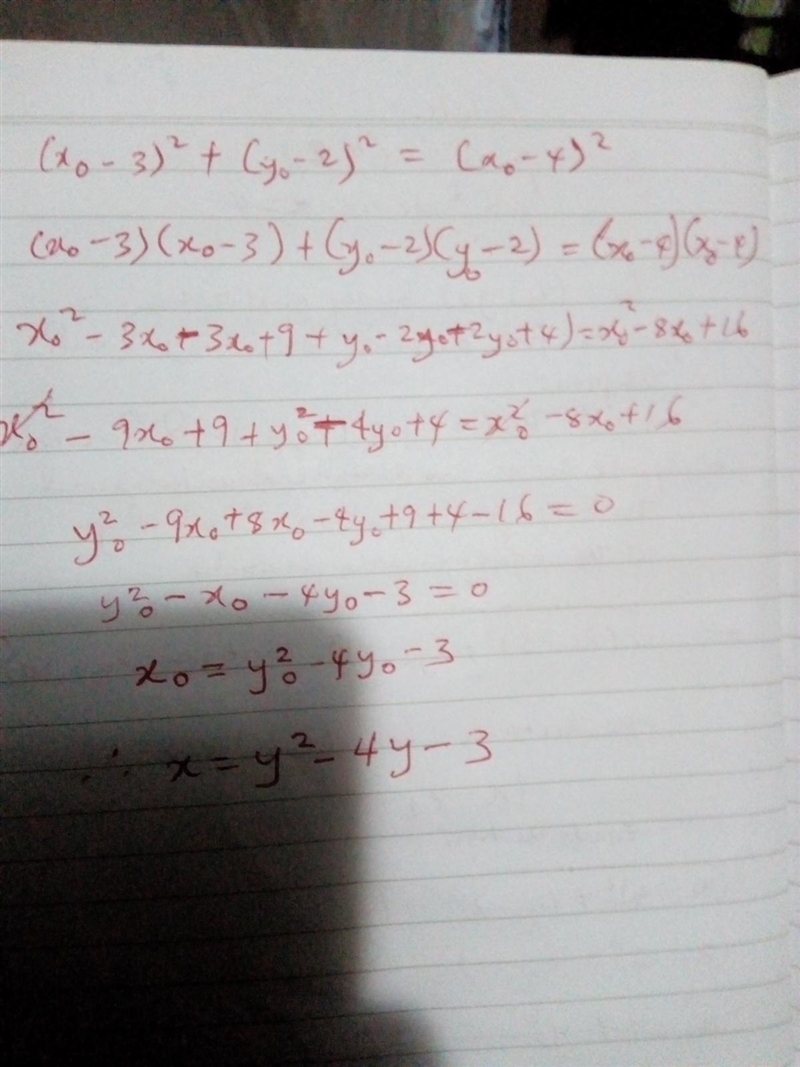 (x₀ - 3)² + (y₀ - 2)² = (x₀ - 4)²
(x₀ - 3)(x₀ - 3) + (y₀ - 2)(y₀ - 2) = (x₀ - 4)(x₀ - 4)
x₀² - 3x₀ - 3x₀ + 9 + y₀ - 2y₀ + 2y₀ + 4) = x₀² - 8x₀ + 16
x₀² - 9x₀ + 9 + y₀² - 4y₀ + 4 = x₀² - 8x₀ + 16
y₀² - 9x₀ + 8x₀ - 4y₀ + 9 + 4 - 16 = 0
y₀² - x₀ - 4y₀ - 3 = 0
x₀ = y₀² - 4y₀ - 3
∴ x = y² - 4y - 3